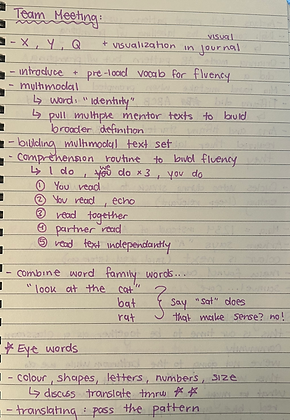 Team Meeting:
visual
- X, Y, Q + visualization in journal
- introduce + pre-load vocab for fluency
- multimodal
↳ word: "identity"
↳ pull multiple mentor texts to build
broader definition
- building multimodal text set
- comprehension routine to build fluency
↳ I do, we do ×3, you do
① You read
② You read, echo
③ read together
④ partner read
⑤ read text independantly
- combine word family words...
"look at the cat"
bat } say "sat" does
rat that make sense? no!
☆ Eye words
- colour, shapes, letters, numbers, size
↳ discuss translate tmrw ☆ ☆
- translating: pass the pattern